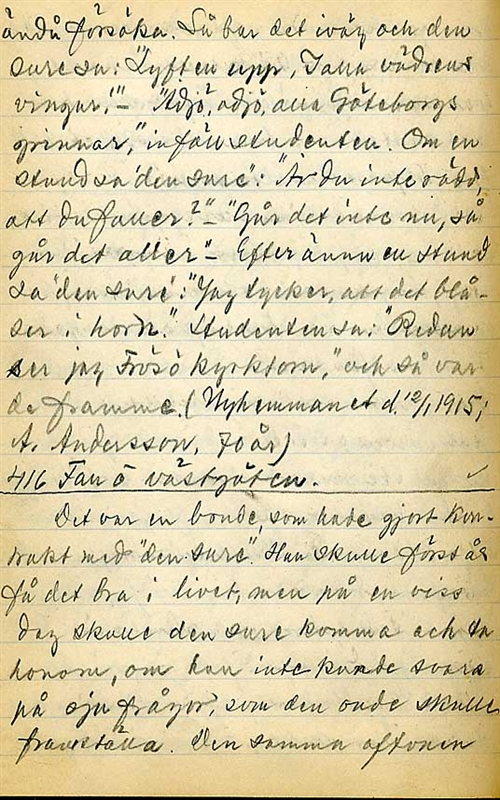 ändå försöka. Så bar det iväg och den
sure sa: "Lyften upp, I alla vädrens
vingar!" – "Adjö, adjö, alla Göteborgs
grinnar," inföll studenten. Om en
stund sa 'den sure': "Är du inte rädd,
att du faller?" – "Går det inte nu, så
går det aller" – Efter ännu en stund
sa 'den sure': "Jag tycker, att det blå-
ser i horn." Studenten sa: "Redan
ser jag Frösö kyrktorn," och så var
de framme. (Nyhemmanet d. 12/1, 1915;
A. Andersson, 70 år)
416 Fan o västgöten. ✓
Det var en bonde, som hade gjort kon-
trakt med "den sure". Han skulle först
få det bra i livet, men på en viss
dag skulle den sure komma och ta
honom, om han inte kunde svara
på sju frågor, som den onde skulle
framställa. Den samma aftonen